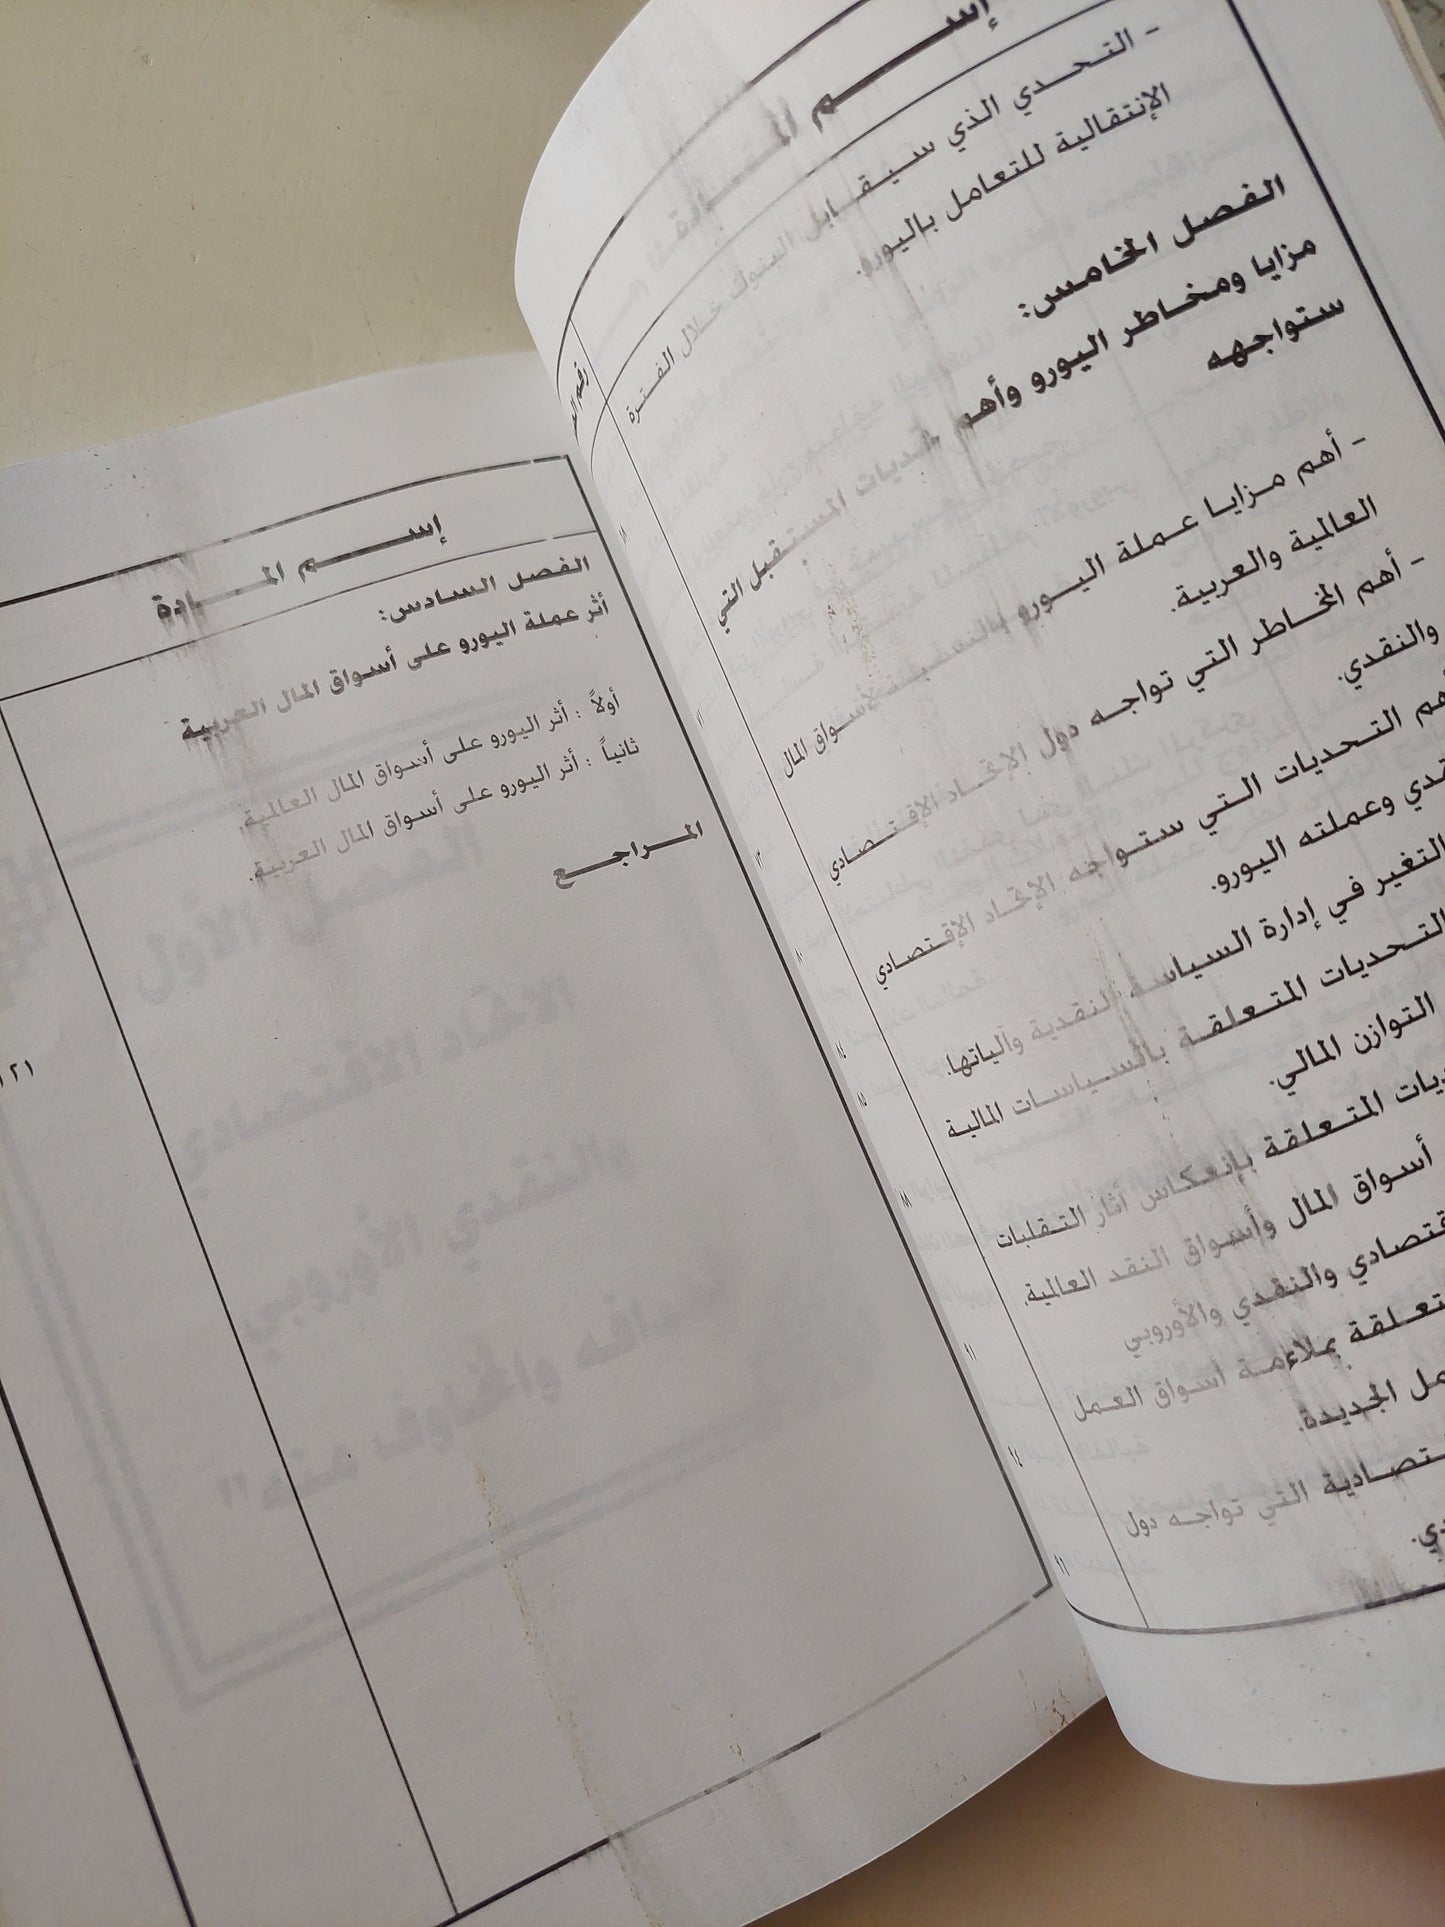 إســـم المـــادة
- التـحـدي الذي سـيـقـابل البنوك خـلال الفـتـرة
الإنتقالية للتعامل باليورو.
الفصل الخامس:
مزايا ومخاطر اليورو وأهم تحديات المستقبل التي
ستواجهه
- أهم مـزايـا عـملة اليـورو بالنسـبـة لأسواق المال
العالمية والعربية.
- أهم المخاطر التي تواجـه دول الإتحـاد الإقـتـصـادي
والنقدي.
التـحديات الـتي ستـواجه الإتحـاد الإقـتصـادي
وعملته اليورو.
التغير في إدارة السياسة النقدية وآلياتها.
التـحديات المتـعلقـة بالسـياسـات المالية
التوازن المالي.
المتـعلقة بإنعكاس آثار التـقلبات
أسواق المال وأسواق النقد العالمية.
والنقدي والأوروبي
بملاءمـة أسواق العـمل
الجديدة.
التي تواجـه دول
٩٤
إســـم المـــادة
الفصل السادس:
أثر عملة اليورو على أسواق المال العربية
أولاً : أثر اليورو على أسواق المال العالمية.
ثانياً : أثر اليورو على أسواق المال العربية.
المـراجـع
١٢١
الفصل الأول
الاتحاد الاقتصادي
والنقدي الأوروبي
والمخاوف منه"